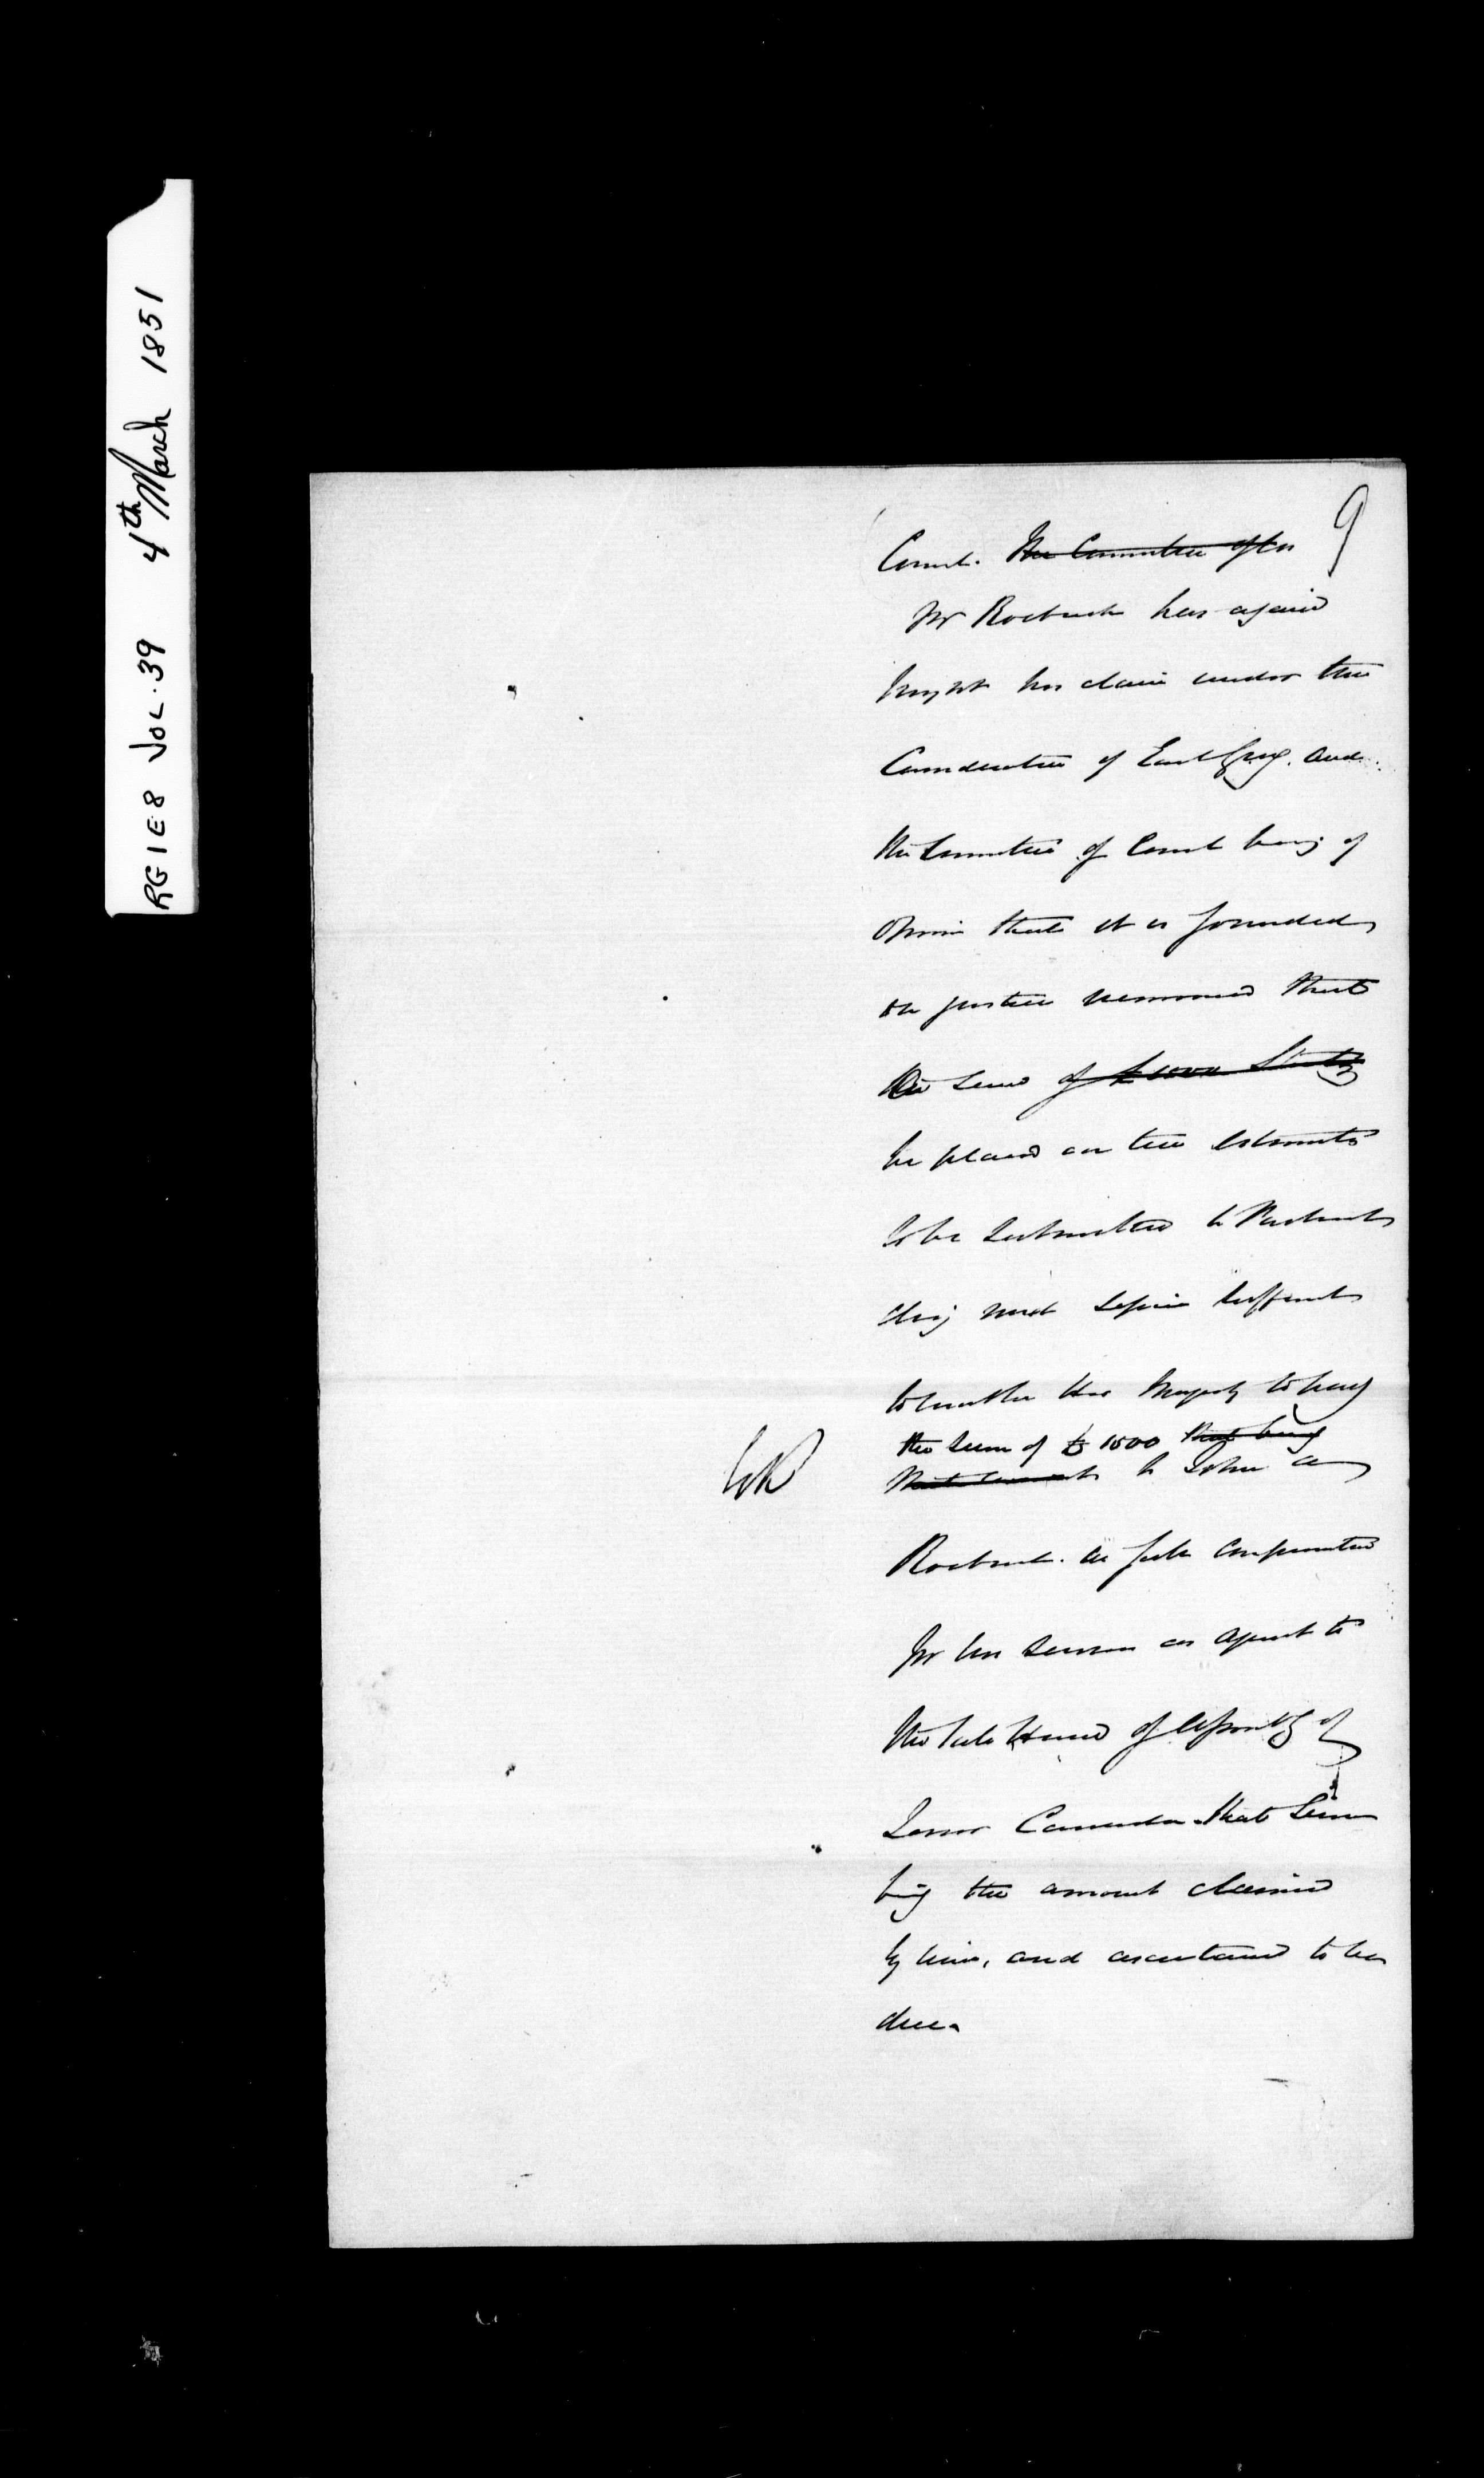 RG 1 E 8 VOL. 39 4th March 1851
9
Council. The Committee after
Mr Roebuck has again
brought his claim under the
Consideration of Earl Grey. and
the Committee of Council being of
opinion that it is founded
on justice recommend that
the sum of £1000 Sterling
be placed on the Estimates
to be submitted to Parliament
next Session sufficient
to enable Her Majesty to pay
the sum of £ 1500 that being
to John A
Roebuck. as full compensation
for his services as Agent to
the late House of Assembly of
Lower Canada that Sum
being the amount claimed
by him, and ascertained to be
due.